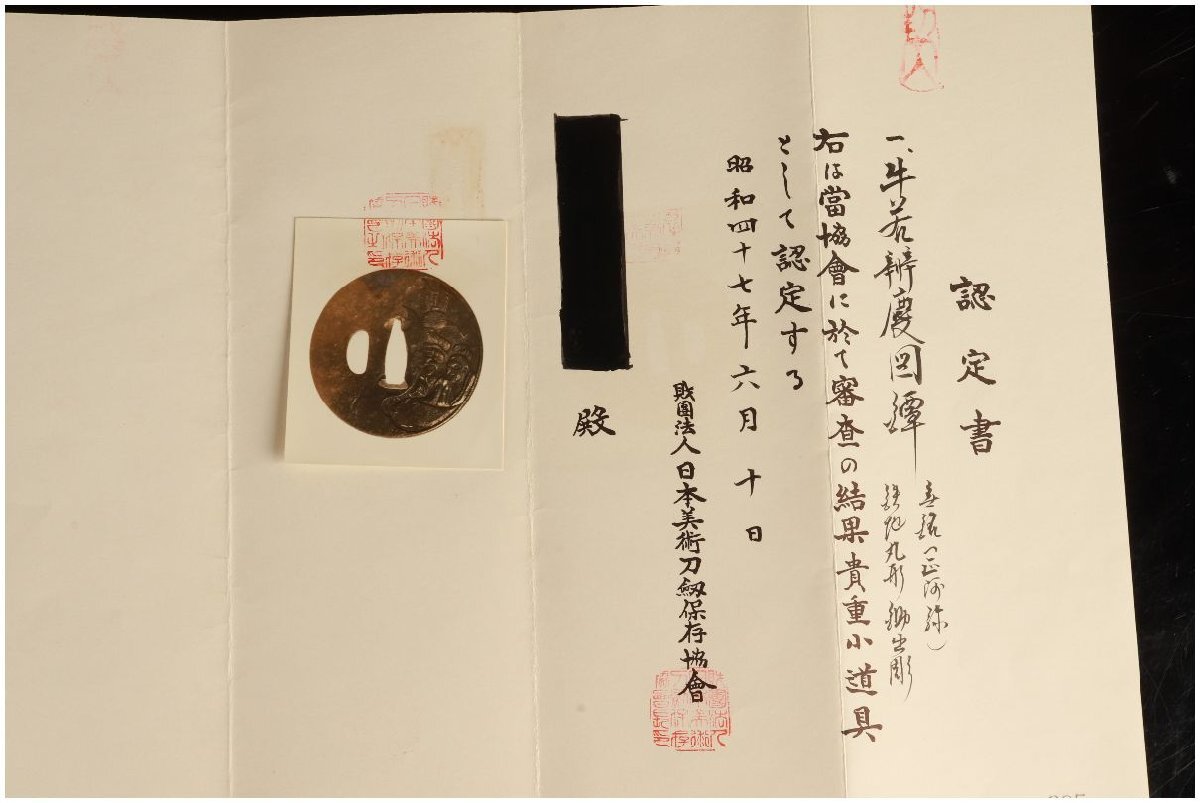 認定書
一、牛若辨慶図鐔
無銘(正阿弥)
鉄地丸形鋤出彫
右は當協會に於て審査の結果貴重小道具
として認定する
昭和四十七年六月十日
財團法人日本美術刀剱保存協會
殿